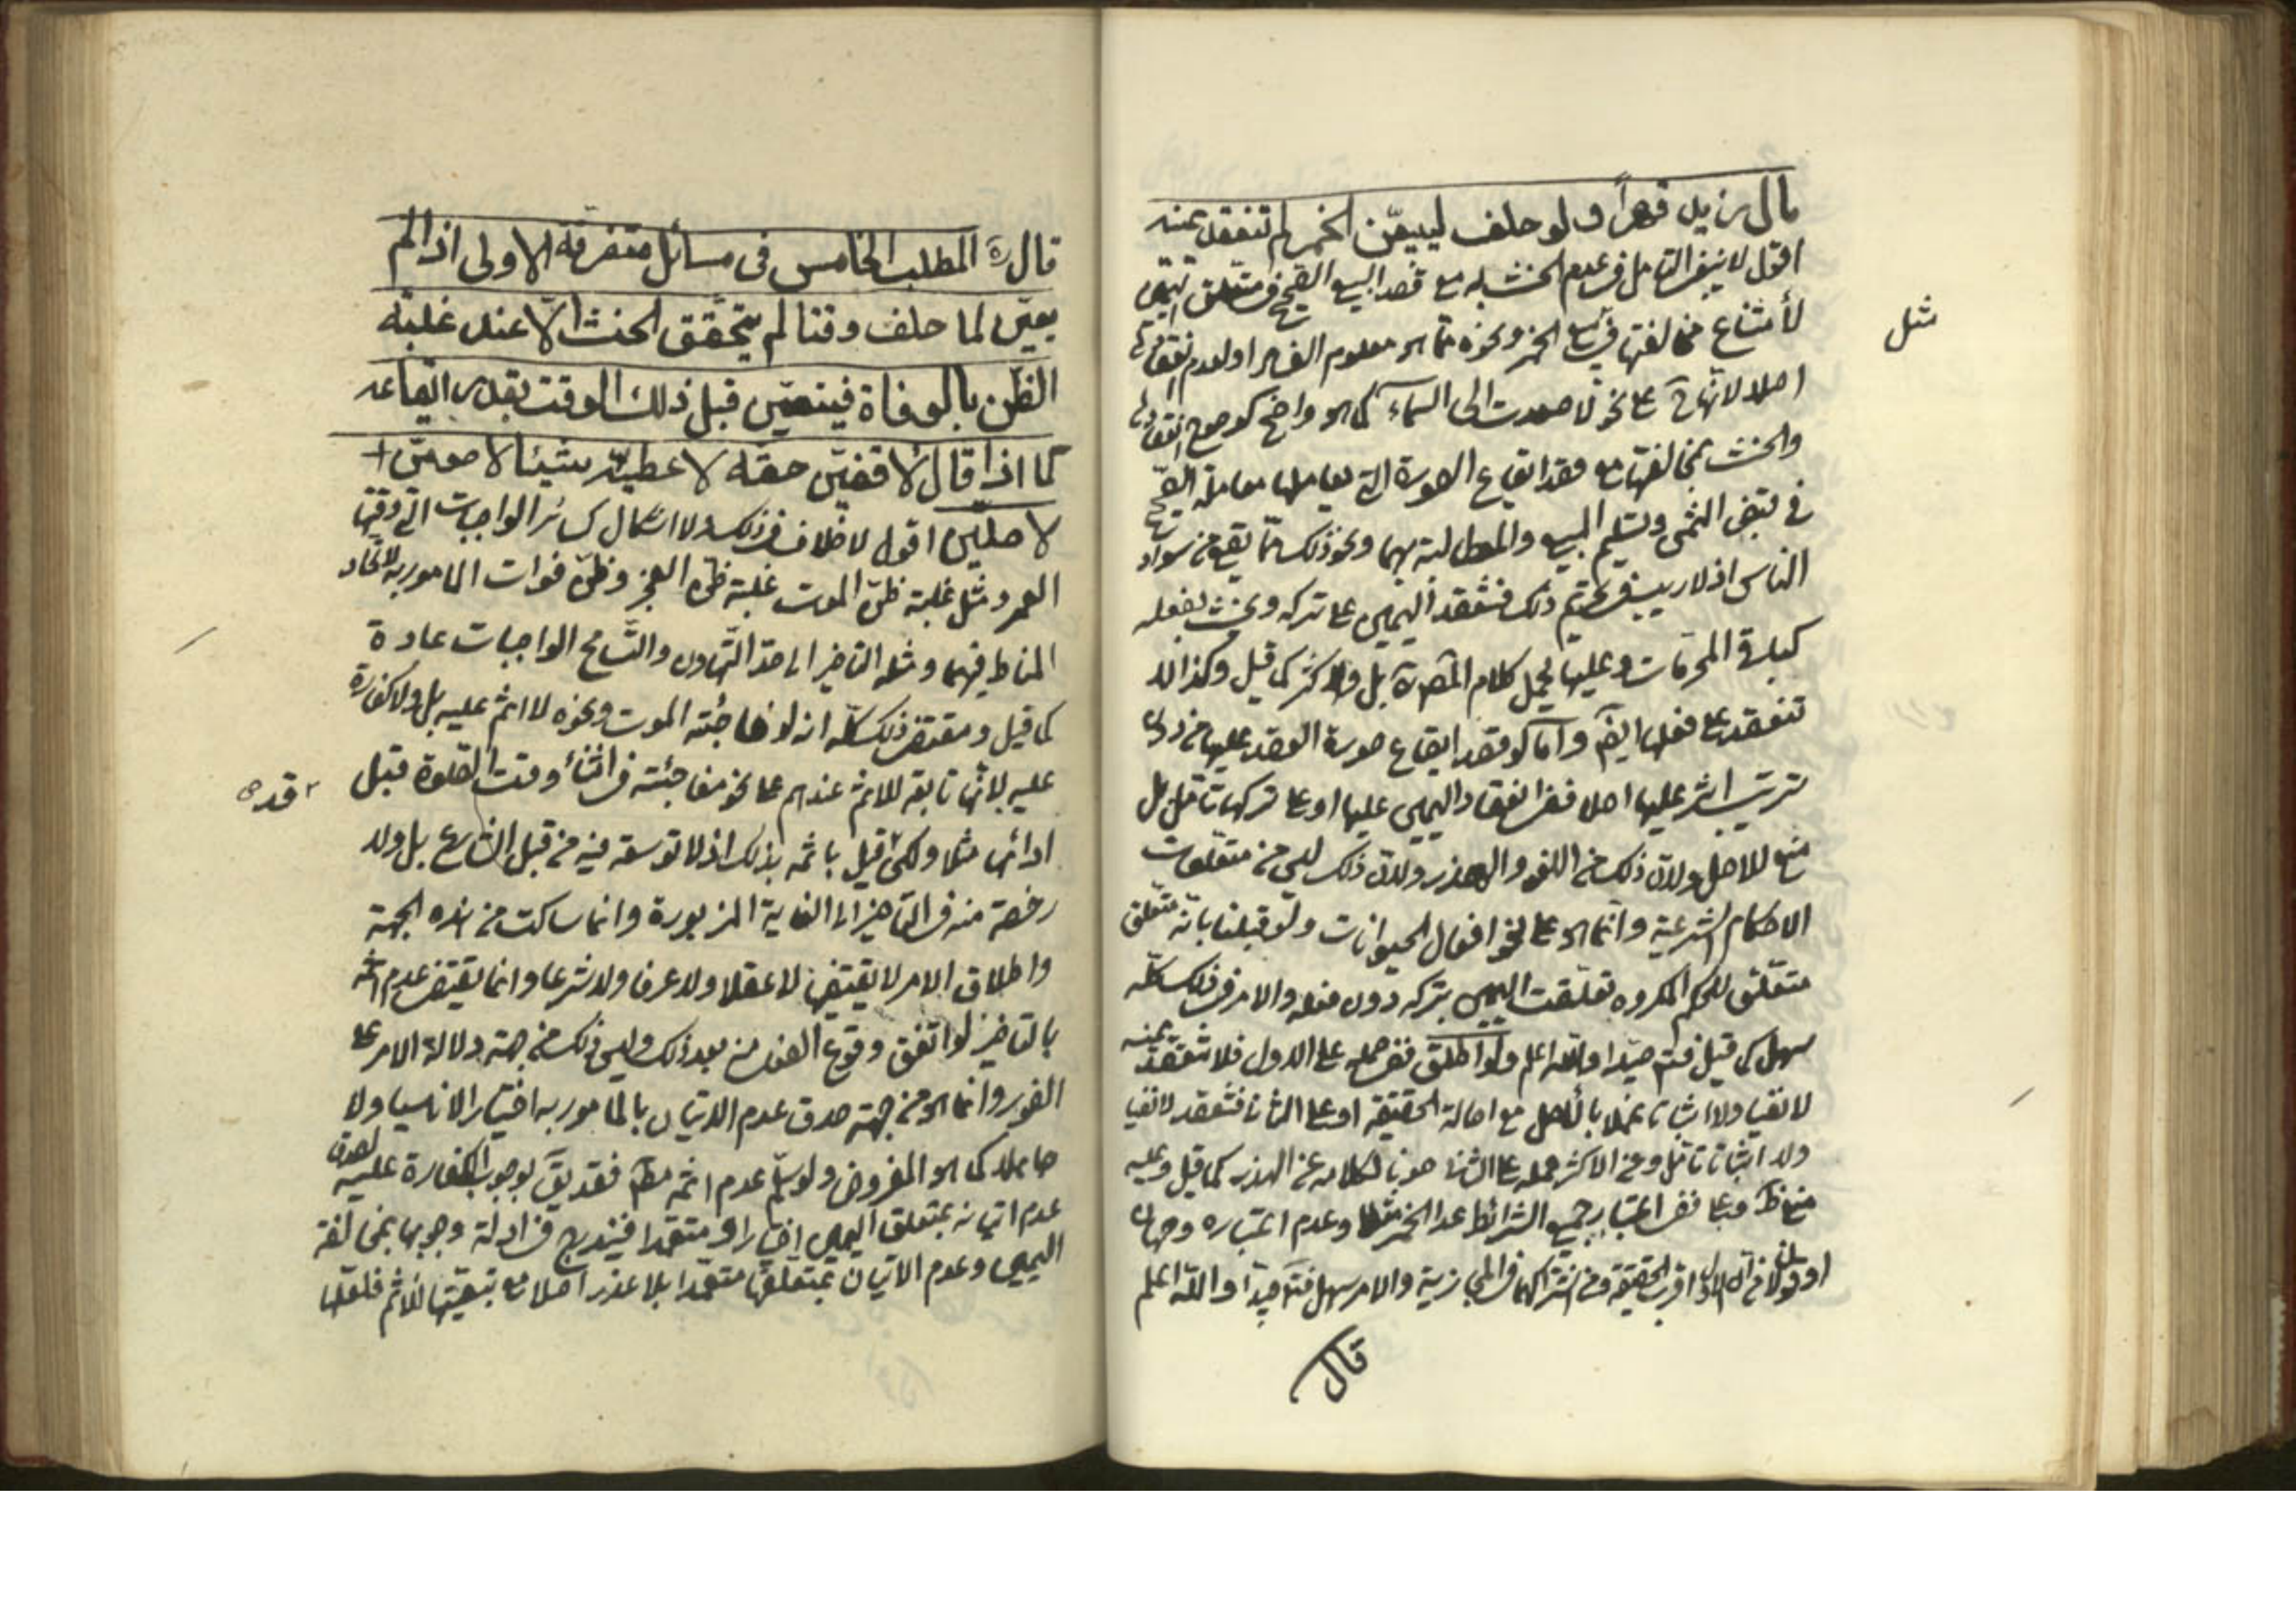 مال زيد قهراً ولو حلف ليبيعنّ الخمر لم تنعقد يمينه
اقول لا ينبغى التامل فى عدم الحنث به مع قصد البيع الصحيح فى متعلق اليمين
لأمتناع مخالفتها فى بيع الخمر ونحوه مما هو معلوم الفساد او لعدم انعقادها
اصلا لانها ح على نحو لا صعدت الى السماء كما هو واضح كوضوح انعقادها
والحنث بمخالفتها مع قصد ايقاع الصورة التى يعاملها معاملة الصحيح
فى قبض الثمن وتسليم المبيع والمطالبة بهما ونحو ذلك مما يقع من سواد
الناس اذ لا ريب فى تحريم ذلك فتنعقد اليمين على تركه ويحنث بفعله
كباقى المحرمات وعليها يحمل كلام المصره بل والاكثر كما قيل وكذا لا
تنعقد على فعلها ايضا واما لو قصد ايقاع صورة العقد عليها من دون
ترتيب اثر عليها اصلا ففى انعقاد اليمين عليها او على تركها تامل بل
منع للاصل ولان ذلك من اللغو والهذر ولان ذلك ليس من متعلقات
الاحكام الشرعية وانما هو على نحو افعال الحيوانات ولو قبلنا بانه متعلق
متعلق للحكم المكروه تعلقت اليمين بتركه دون فعله والامر فى ذلك كله
سهل كما قيل فتم جيدا والله اعلم ولو اطلق ففى حمله على الاول فلا تنعقد يمينه
لا نفيا ولا اثباتا عملا بالاصل مع اصالة الحقيقة او على الثانى فتنعقد لا نفيا
ولا اثباتا تامل وعن الاكثر حمله على الثانى صونا لكلامه عن الهذر كما قيل وعليه
ففى اعتبار جميع الشرائط عدا الخمر مثلا وعدم اعتباره وجهان
او قولان من ان الاول اقرب للحقيقة ومن اشتراكهما فى المجازية والامر سهل فتم جيدا والله اعلم
قال
مثل
قال ره المطلب الخامس فى مسائل متفرقة الاولى اذا لم
يعيّن لما حلف وقتا لم يتحقق الحنث الّا عند غلبة
الظن بالوفاة فيتعيّن قبل ذلك الوقت بقدر ايقاعه
كما اذا قال لأقضيّن حقه لاعطينّه شيئا لاصومنّ
لاصلين اقول لا خلاف فى ذلك ولا اشكال كسائر الواجبات التى وقتها
العمر ومثل غلبة ظن الموت غلبة ظن العجز وظن فوات المامور به لاتحاد
المناط فيهما ومثله التاخير الى حد التهاون والتسامح الواجبات عادة
كما قيل ومقتضى ذلك كله انه لو فاجئته الموت ونحوه لا اثم عليه بل ولا كفارة
عليه لانها تابعة للاثم عندهم على نحو مفاجئته فى اثناء وقت الصلوة قبل
ادائها مثلا ولكن قيل باثمه بذلك اذ لا توسعة فيه من قبل الشارع بل ولا
رخصة منه فى التاخير الى الغاية المزبورة وانما ساكت من هذه الجهة
واطلاق الامر لا يقتضيها لا عقلا ولا عرفا ولا شرعا وانما يقتضى عدم اثمه
بالتاخير لو اتفق وقوع الفعل من بعد ذلك وليس ذلك من جهة دلالة الامر على
الفور وانما هو من جهة صدق عدم الاتيان بالمامور به اختيارا لا ناسيا ولا
جاهلا كما هو المفروض ولو سلم عدم اثمه مطم فقد يق بوجوب الكفارة عليه لصدق
عدم اتيانه بمتعلق اليمين اختيارا ومتعمدا فيندرج فى ادلة وجوبها بمخالفة
اليمين وعدم الاتيان بمتعلقها متعمدا بلا عذر اصلا مع تبعيتها للاثم فلعلها
قد